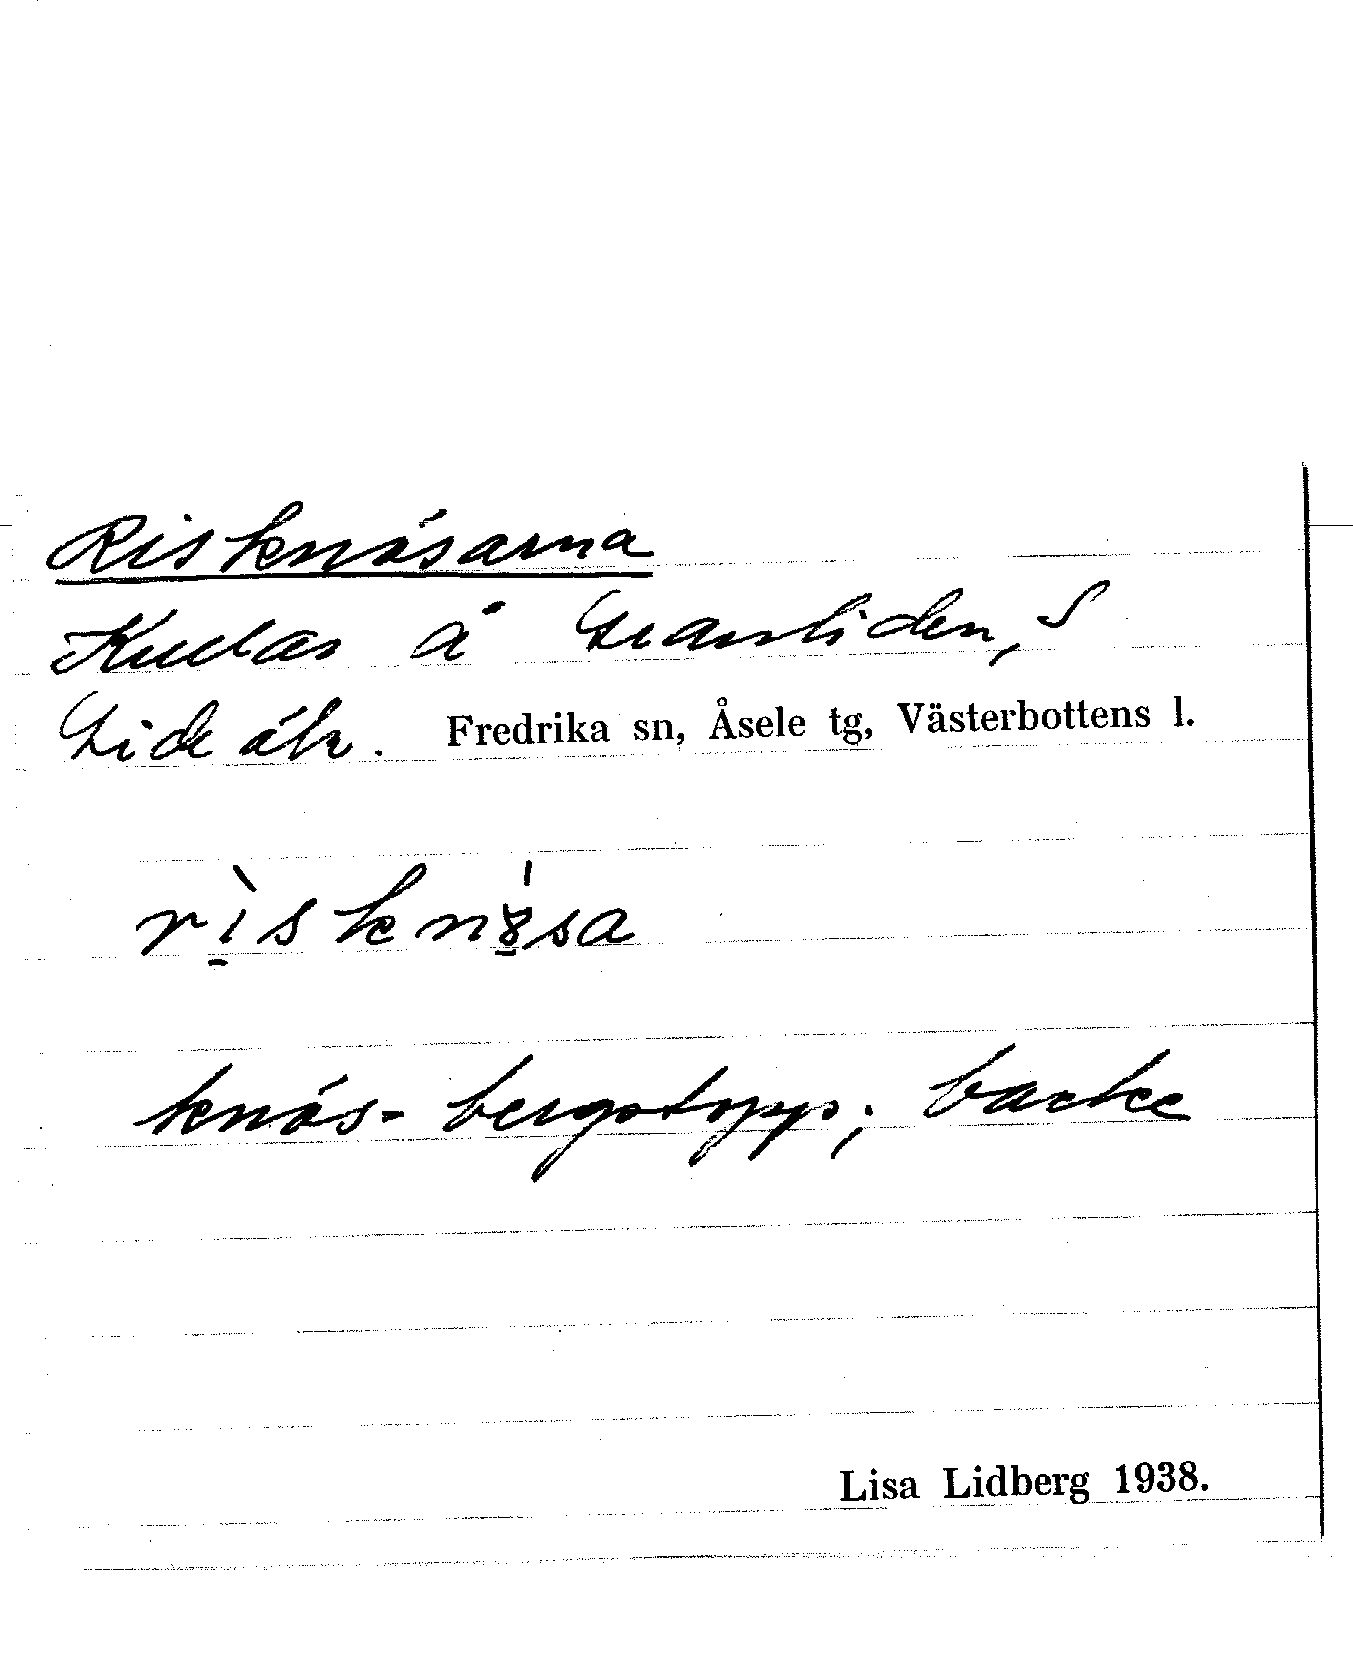 Risknösarna
Kullar å Granliden, S
Lide älv. Fredrika sn, Åsele tg, Västerbottens l.
rìsknösa
knös- bergstopp; backe
Lisa Lidberg 1938.